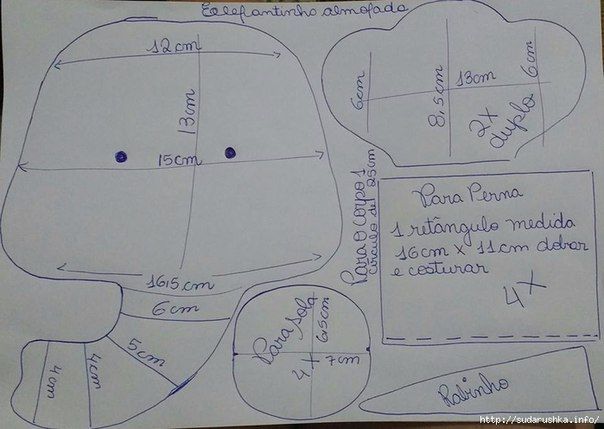 Elefantinho almofada
12cm
13cm
15cm
16,5cm
6cm
5cm
4cm
4cm
6cm
8,5cm
13cm
6cm
2x
dupla
Para o corpo 1
círculo de 25cm
Para Perna
1 retângulo medida
16cm x 11cm dobrar
e costurar
4x
Para sola
6,5cm
7cm
4x
Rabinho
http://sudarushka.info/